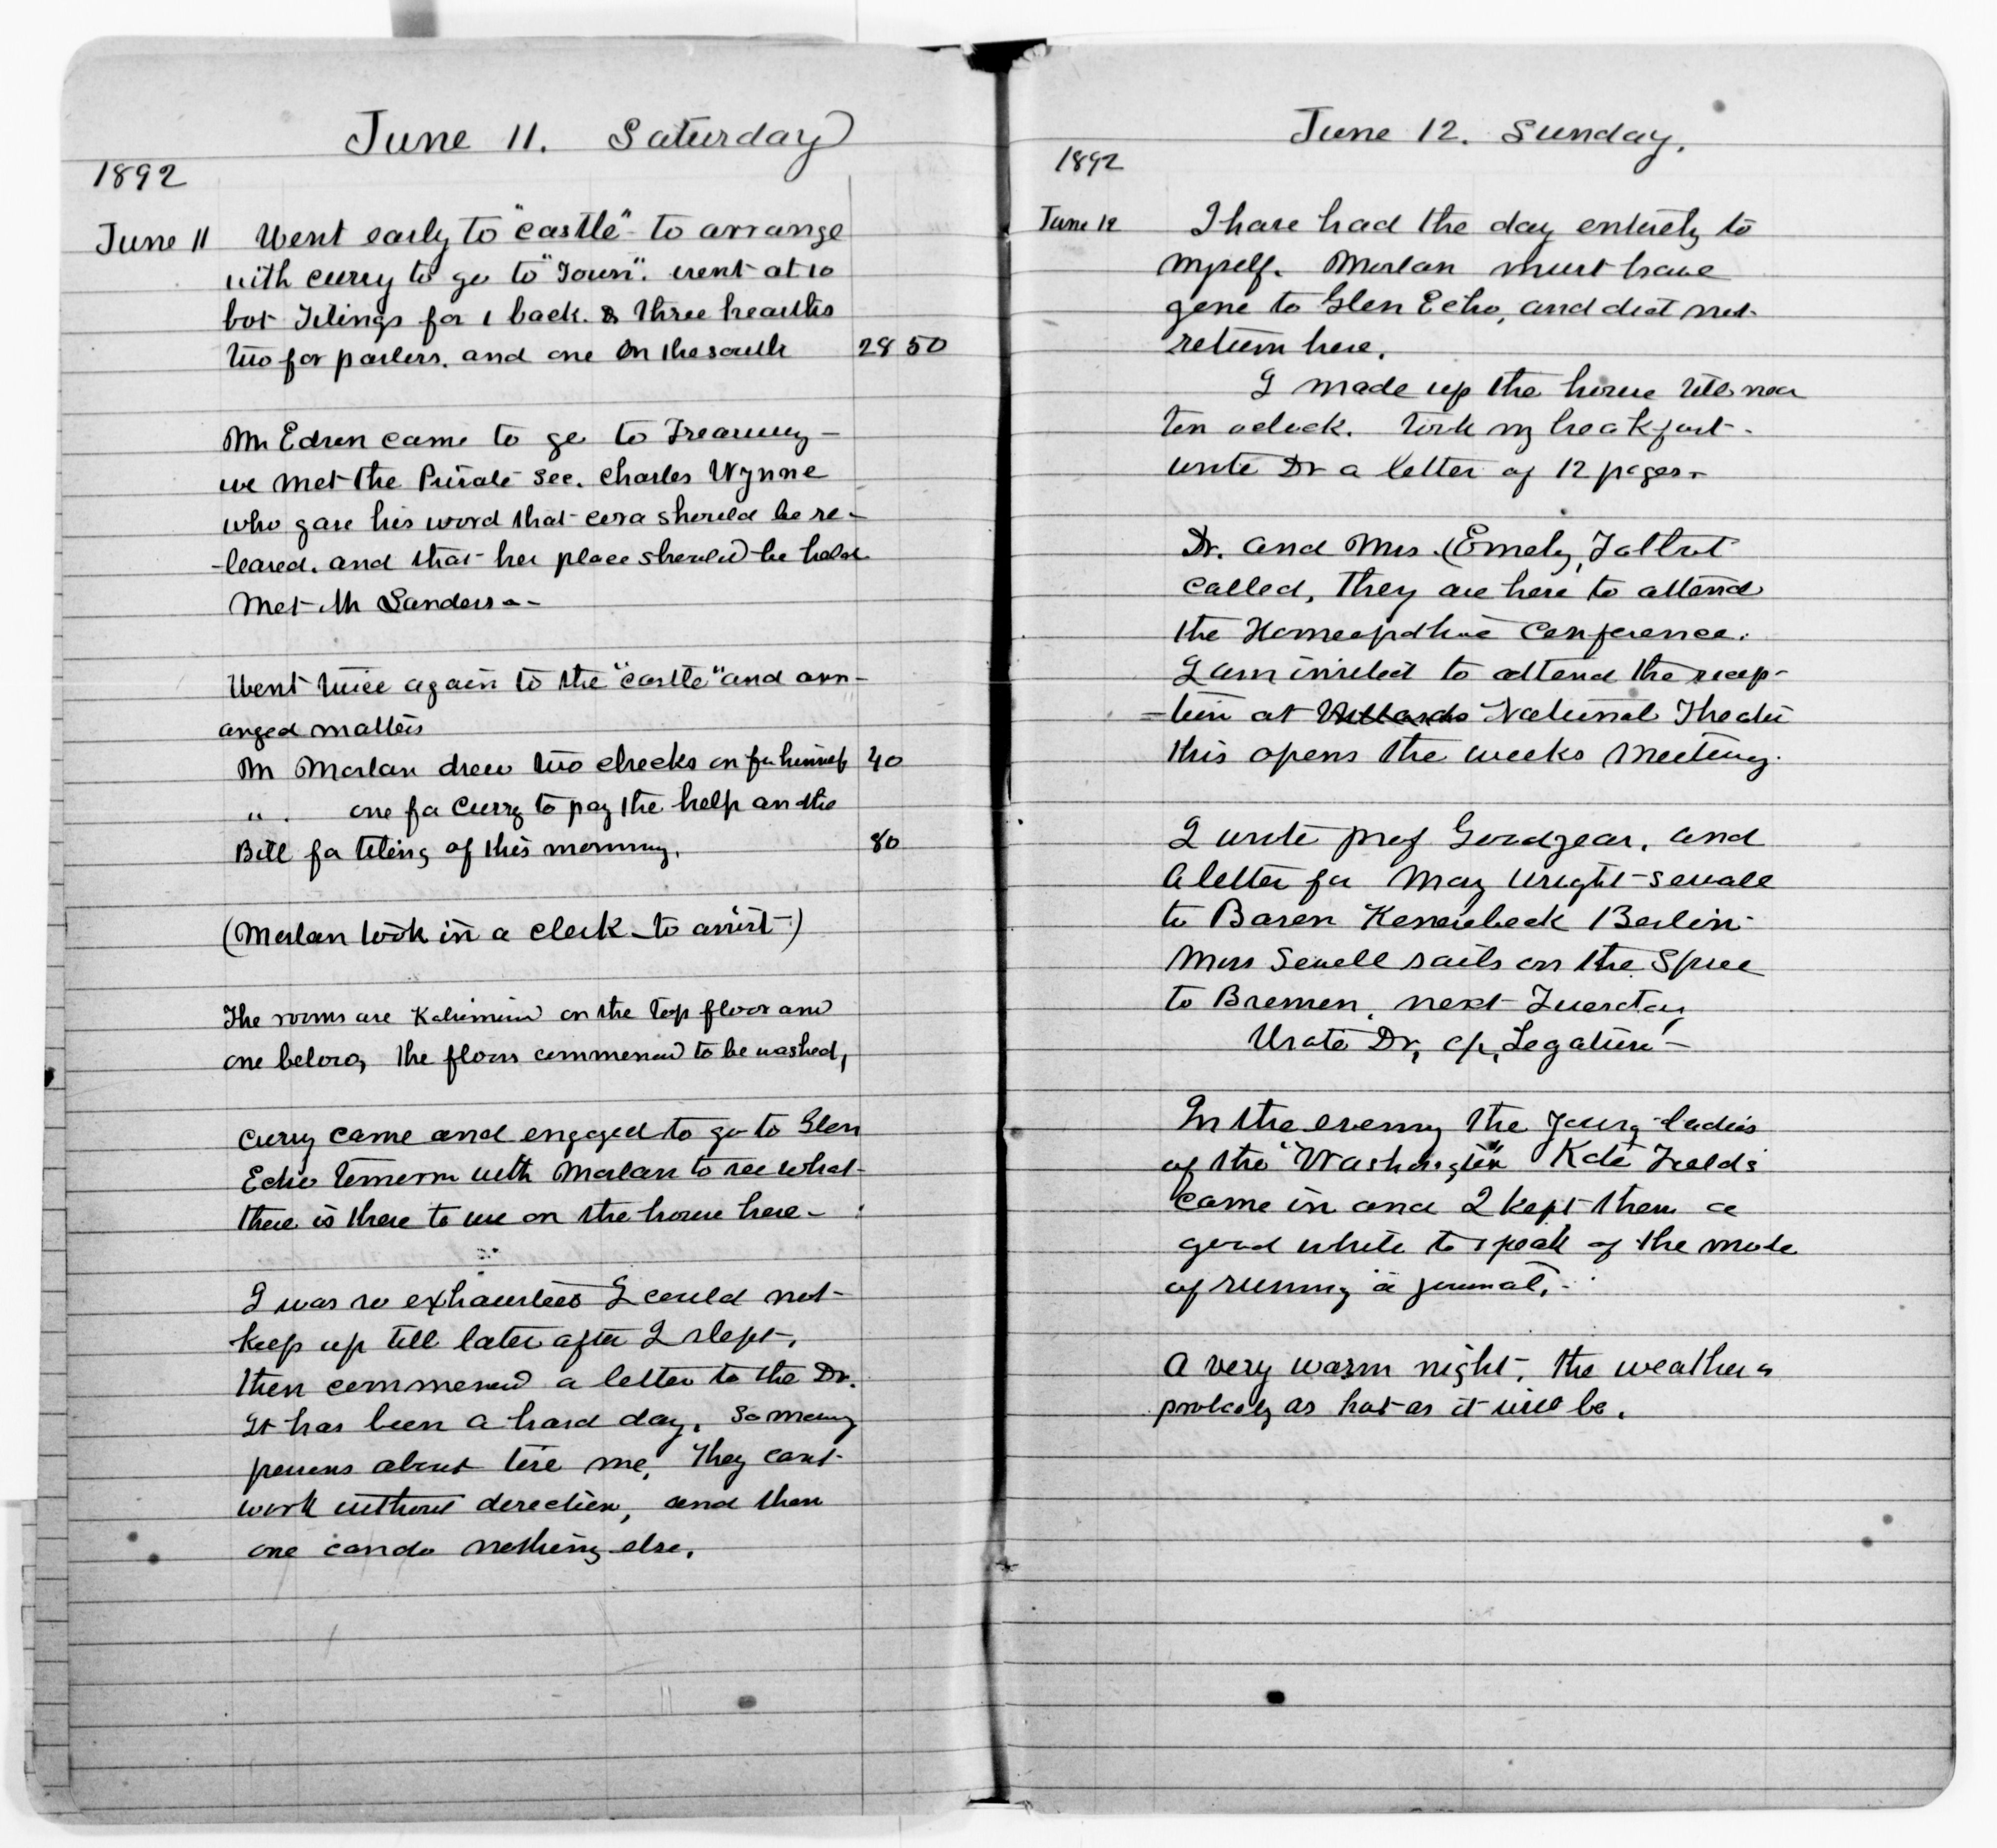 June 11. Saturday
1892
June 11 Went early to "castle" to arrange
with curry to go to "Town". went at 10
bot Tilings for 1 back. & three hearths
two for parlers. and one on the south 28 50
Mr Edson came to go to Treasury -
we met the Private Sec. Charles Wynne
who gave his word that cora should be re-
-leased. and that her place should be held
Met Mr Sanders - -
Went twice again to the "castle" and arr-
anged matters
Mr Morlan drew two checks on for himself 40
" . one for Curry to pay the help and the
Bill for tiling of this morning. 80
(Morlan took in a clerk - to assist)
The rooms are Kalsimined on the top floor and
one below, the floors commenced to be washed,
Curry came and engaged to go to Glen
Echo tomorrow with Morlan to see what
there is there to use on the house here -
I was so exhausted I could not
keep up till later after I slept,
then commenced a letter to the Dr.
It has been a hard day. So many
persons about tire me, They cant
work without direction, and then
one can do nothing else.
June 12. Sunday.
1892
June 12 I have had the day entirely to
myself. Morlan must have
gone to Glen Echo, and did not
return here.
I made up the house till near
ten oclock. Took my breakfast -
wrote Dr a letter of 12 pages -
Dr. and Mrs. (Emely, Talbot
called, They are here to attend
the Homeopathic Conference.
I am invited to attend the recep-
-tion at Willards National Theatre
this opens the weeks meeting.
I wrote prof Goodyear, and
a letter for May Wright-Sewall
to Baron Kenesebeck Berlin -
Mrs Sewell sails on the Spree
to Bremen, next Tuesday
Wrote Dr, c/o, Legation -
In the evening the young ladies
of the "Washington" Kate Fields
came in and I kept them a
good while to speak of the mode
of running a journal. -
A very warm night. the weather is
probably as hot as it will be.